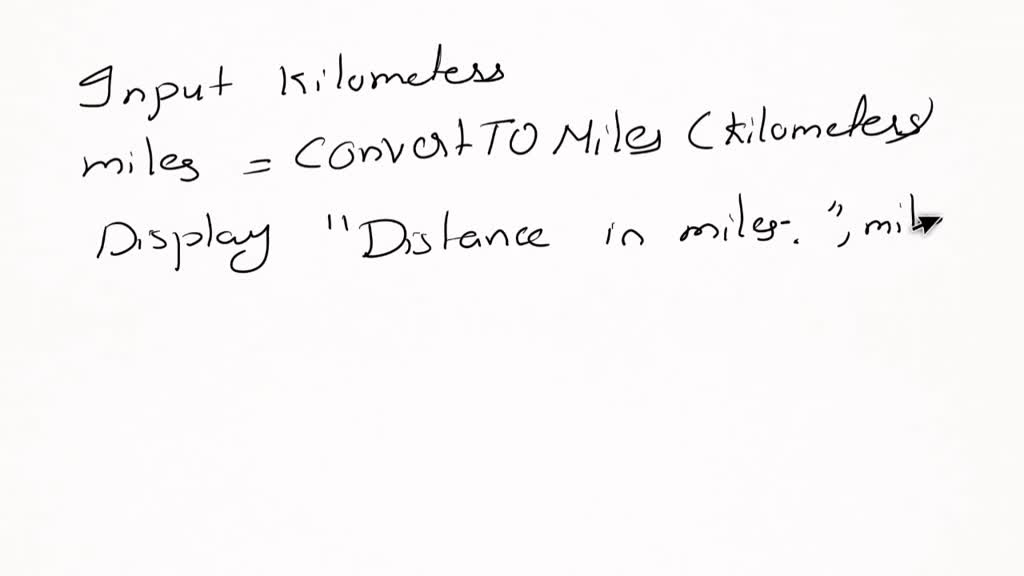 Input Kilometers
miles = ConvertTO Miles (kilometers)
Display "Distance in miles. ", mil